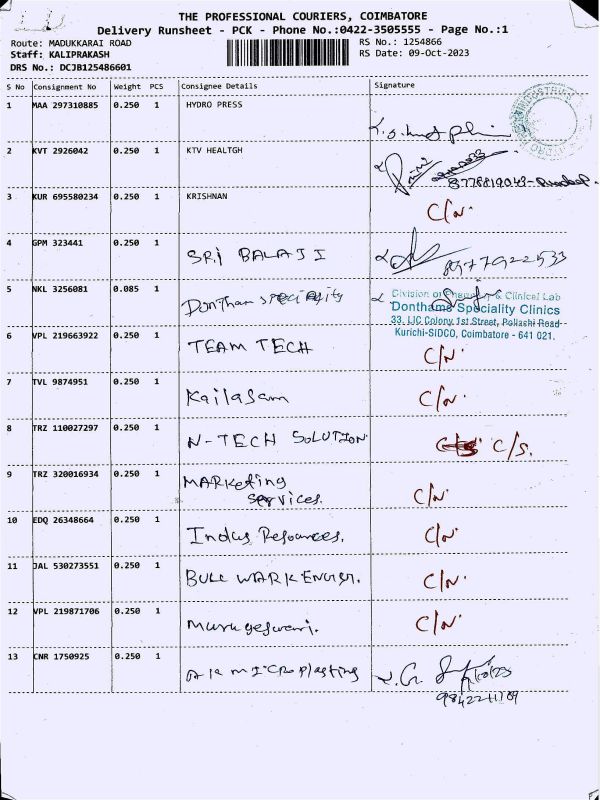 THE PROFESSIONAL COURIERS, COIMBATORE
Delivery Runsheet - PCK - Phone No.:0422-3505555 - Page No.:1
Route: MADUKKARAI ROAD RS No.: 1254866
Staff: KALIPRAKASH RS Date: 09-Oct-2023
DRS No.: DCJB125486601
S No Consignment No Weight PCS Consignee Details Signature
1 MAA 297310885 0.250 1 HYDRO PRESS
2 KVT 2926042 0.250 1 KTV HEALTGH
8778819043
3 KUR 695580234 0.250 1 KRISHNAN C/N.
4 GPM 323441 0.250 1 SRI BALAJI
5 NKL 3256081 0.085 1 Dontham speciality
Division of & Clinical Lab
Donthams Speciality Clinics
33, LIC Colony 1st Street, Pollachi Road
Kurichi-SIDCO, Coimbatore - 641 021.
6 VPL 219663922 0.250 1 TEAM TECH C/N.
7 TVL 9874951 0.250 1 Kailasam C/N.
8 TRZ 110027297 0.250 1 N-TECH SOLUTION C/S.
9 TRZ 320016934 0.250 1 MARKeting
services. C/N.
10 EDQ 26348664 0.250 1 Indus Resources. C/N.
11 JAL 530273551 0.250 1 BULL WARK C/N.
12 VPL 219871706 0.250 1 Murugeswari. C/N.
13 CNR 1750925 0.250 1 MICRO plasting